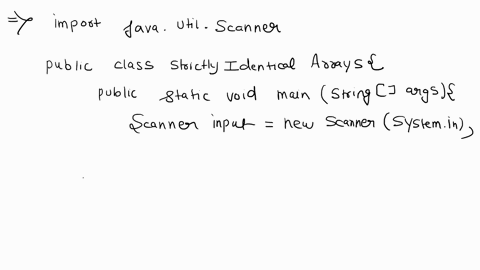 => import java.util.Scanner
public class Strictly Identical Arrays{
public static void main (String [] args){
Scanner input = new Scanner (System.in),